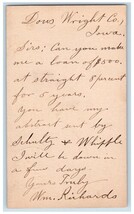 Dows Wright Co,
Iowa,
Sirs; Can you make
me a loan of $500.
at straight 8 percent
for 5 years,
you have my
abstract sent by
Schultz & Whipple
I will be down in
a few days
Yours Truly
Wm. Richards